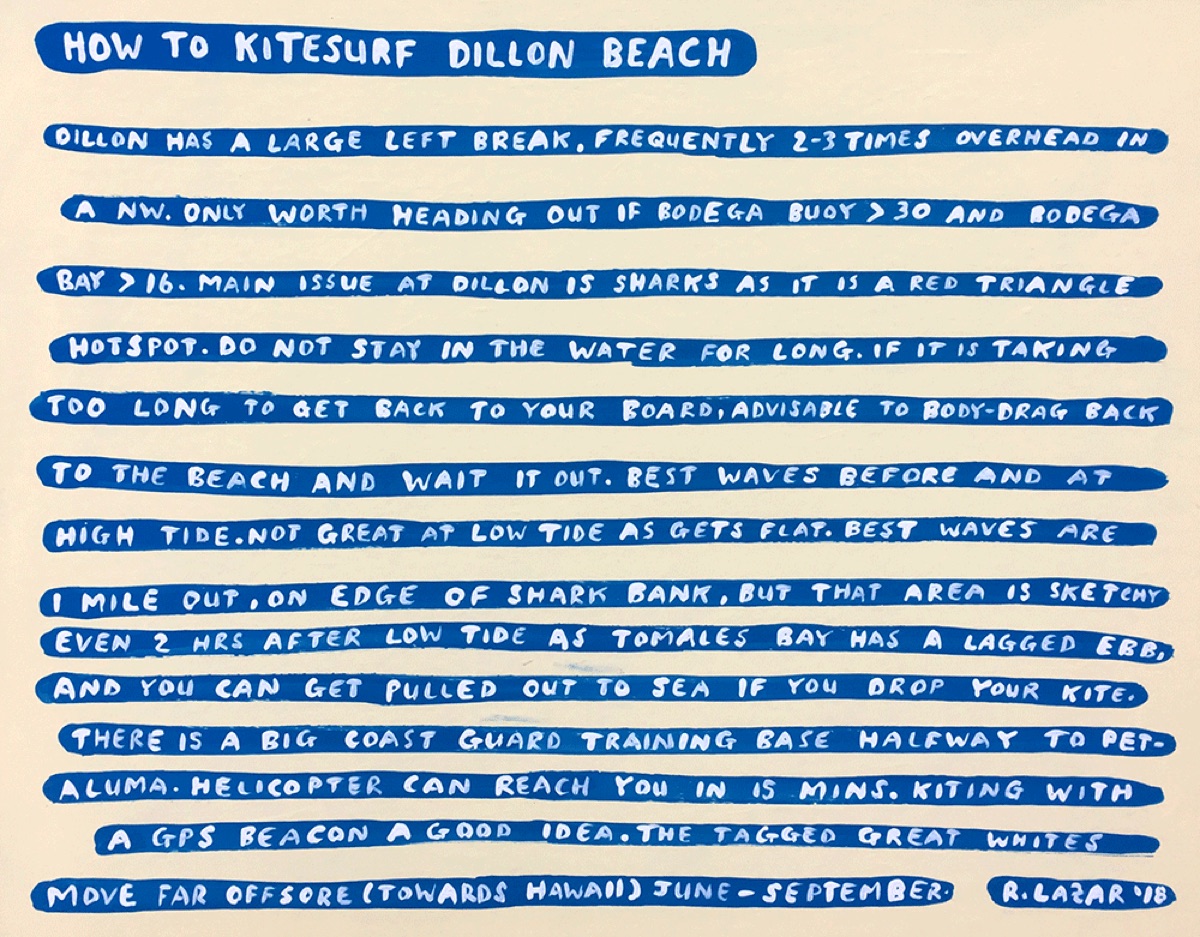 HOW TO KITESURF DILLON BEACH
DILLON HAS A LARGE LEFT BREAK, FREQUENTLY 2-3 TIMES OVERHEAD IN
A NW. ONLY WORTH HEADING OUT IF BODEGA BUOY > 30 AND BODEGA
BAY > 16. MAIN ISSUE AT DILLON IS SHARKS AS IT IS A RED TRIANGLE
HOTSPOT. DO NOT STAY IN THE WATER FOR LONG. IF IT IS TAKING
TOO LONG TO GET BACK TO YOUR BOARD, ADVISABLE TO BODY-DRAG BACK
TO THE BEACH AND WAIT IT OUT. BEST WAVES BEFORE AND AT
HIGH TIDE. NOT GREAT AT LOW TIDE AS GETS FLAT. BEST WAVES ARE
1 MILE OUT, ON EDGE OF SHARK BANK, BUT THAT AREA IS SKETCHY
EVEN 2 HRS AFTER LOW TIDE AS TOMALES BAY HAS A LAGGED EBB,
AND YOU CAN GET PULLED OUT TO SEA IF YOU DROP YOUR KITE.
THERE IS A BIG COAST GUARD TRAINING BASE HALFWAY TO PET-
ALUMA. HELICOPTER CAN REACH YOU IN 15 MINS. KITING WITH
A GPS BEACON A GOOD IDEA. THE TAGGED GREAT WHITES
MOVE FAR OFFSORE (TOWARDS HAWAII) JUNE - SEPTEMBER. R. LAZAR '18